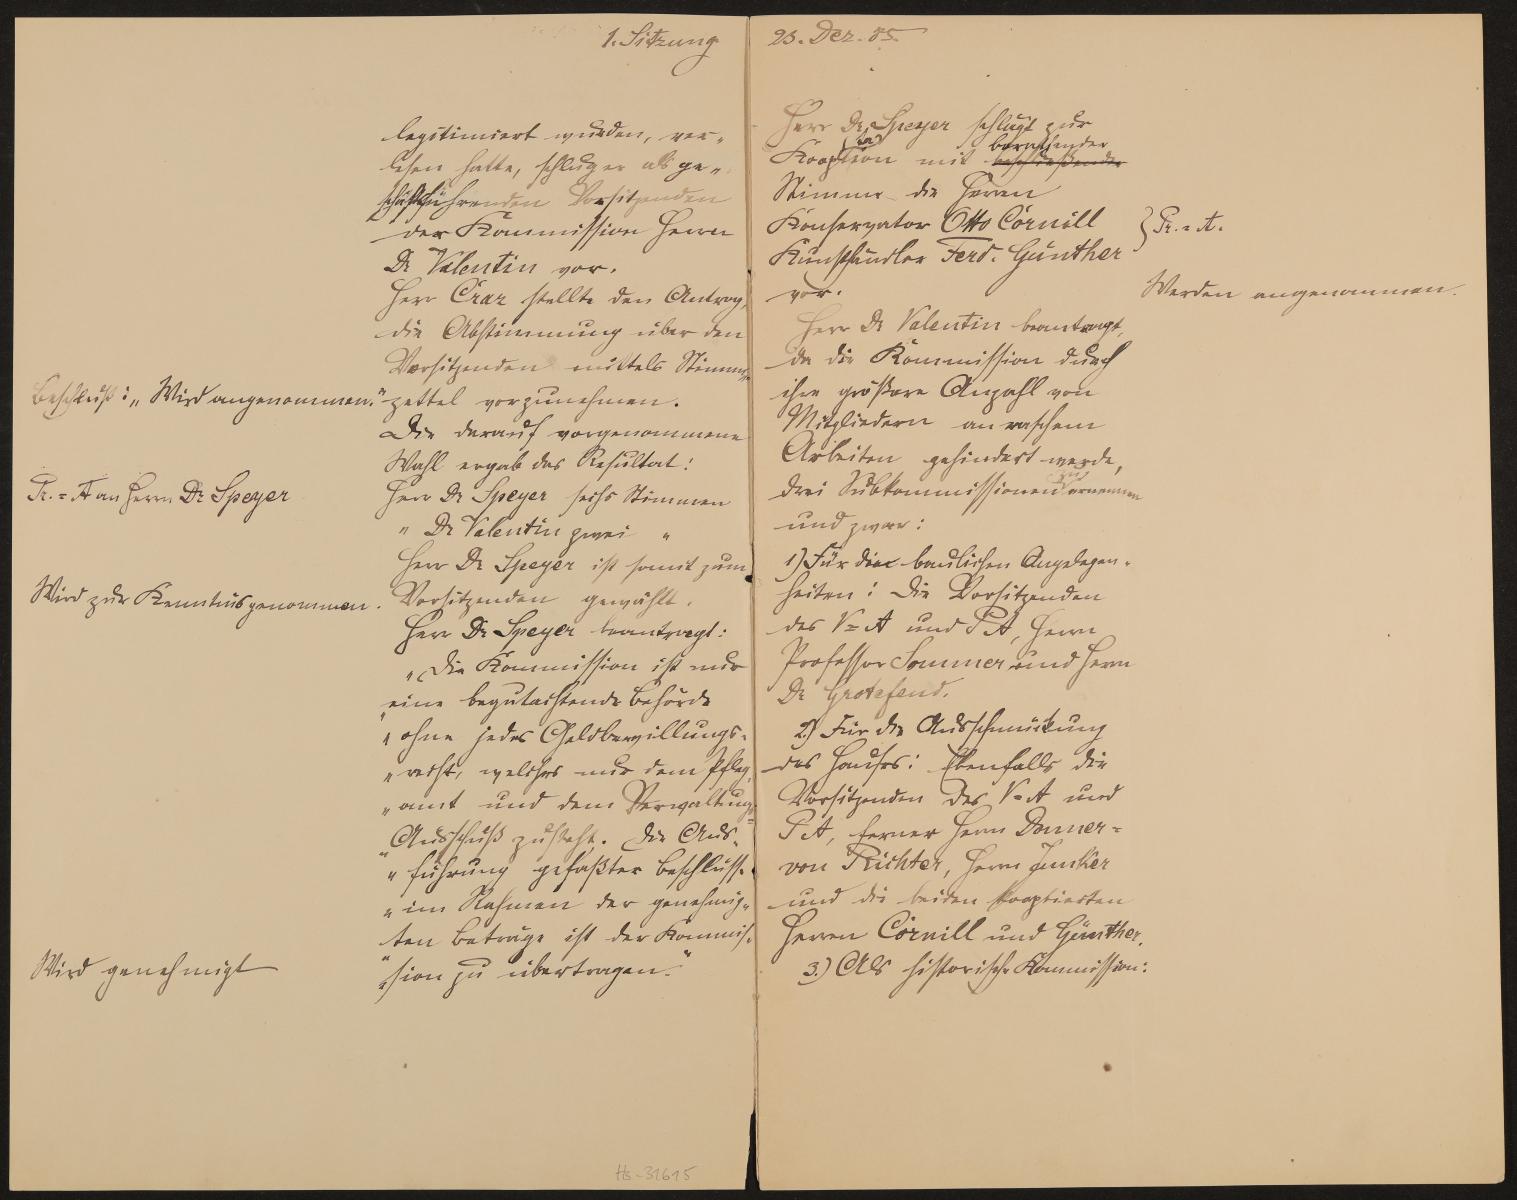 1. Sitzung
legitimiert wurden, ver-
lesen hatte, schlug er als ge-
schäftsführenden Vorsitzenden
der Kommission Herrn
Dr Valentin vor.
Herr Crar stellte den Antrag,
die Abstimmung über den
Vorsitzenden mittels Stimm-
Beschluß: „Wird angenommen."
zettel vorzunehmen.
Die darauf vorgenommene
Wahl ergab das Resultat:
Pr.=A an Herrn Dr Speyer
Herr Dr Speyer sechs Stimmen
" Dr Valentin zwei "
Herr Dr Speyer ist somit zum
Wird zur Kenntnis genommen.
Vorsitzenden gewählt.
Herr Dr Speyer beantragt:
„Die Kommission ist nur
eine begutachtende Behörde
„ohne jedes Geldbewilligungs-
„recht, welches nur dem Pfleg-
„amt und dem Verwaltungs-
„Ausschuß zusteht. Die Aus-
„führung gefaßter Beschlüsse
„im Rahmen der genehmig-
ten Beträge ist der Kommis-
Wird genehmigt
„sion zu übertragen."
Hs-31615
23. Dez. 85
Herr Dr Speyer schlägt zur
Kooption mit beschließender berathender
Stimme die Herren
Konservator Otto Cornill
Pr.=A.
Kunsthändler Ferd. Günther
vor.
Werden angenommen.
Herr Dr Valentin beantragt,
da die Kommission durch
ihre größere Anzahl von
Mitgliedern an raschem
Arbeiten gehindert werde,
drei Subkommissionen zu ernennen
und zwar:
1) Für die baulichen Angelegen-
heiten: Die Vorsitzenden
des V=A und PA, Herrn
Professor Sommer und Herrn
Dr Grotefend.
2) Für die Ausschmückung
des Hauses: Ebenfalls die
Vorsitzenden des V=A und
PA, ferner Herrn Donner=
von Richter, Herrn Junker
und die beiden kooptierten
Herren Cornill und Günther.
3.) Als historische Kommission: